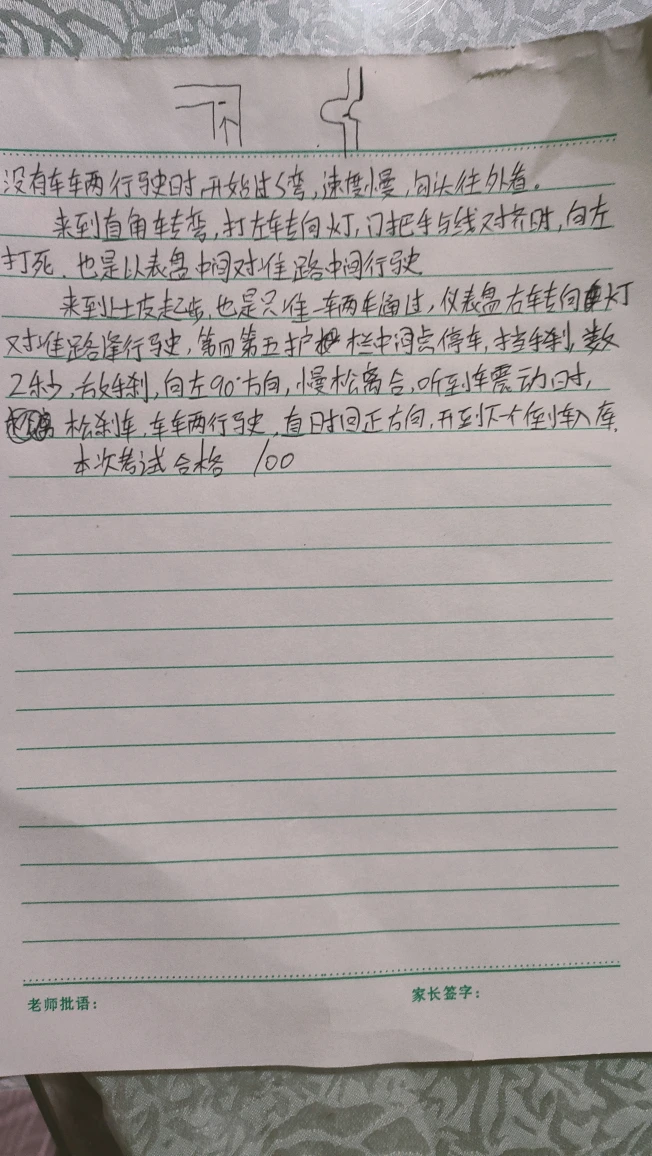 没有车车两行驶时,开始过S弯,速度慢,勾头往外看。
来到直角车转弯,打左车转向灯,门把手与线对齐时,向左
打死.也是以表盘中间对准路中间行驶
来到上坡起步,也是只准一车两车通过,仪表盘右车转向灯
对准路缝行驶,第四第五护栏中间点停车,挂手刹,数
2秒,放手刹,向左90°方向,慢松离合,听到车震动时,
松刹车,车车两行驶,直时回正方向,开到下一个倒车入库.
本次考试合格 100
老师批语:
家长签字: